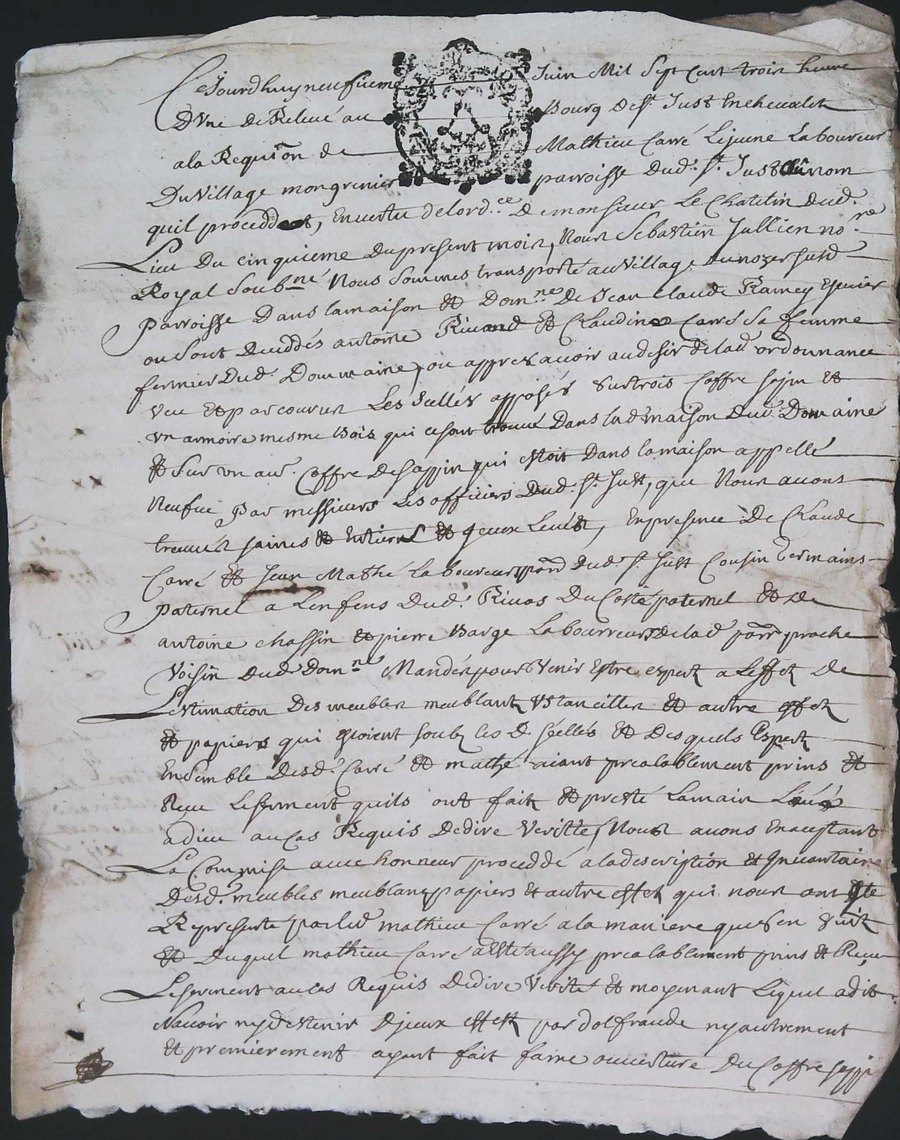 Ce Jourdhuy neufieme Juin Mil Sept Cent trois heure
Dune de Releve au Bourg de St Just En chevalet
a la Requi͠on de Mathieu Carré Le jeune Laboureur
Du Village mongrenier parroisse Dud. St. Just Au nom
quil procedde, En vertu de lord.ce De monsieur Le Chatelin Dud.
Lieu Du cinquieme Du present mois, Nous Sebastien Jullien no.re
Royal Soub.né Nous Sommes transporté au Village Du nozer susd
parroisse Dans la maison Et Dom.ne De Jean Claude Ramey Escuier
ou Sont Deceddés antoine Rivaud Et Claudine Carré Sa femme
fermier Dud. Dommaine, ou appres avoir au desir de lad. ordonnance
Veu Et parcourus Les Scellés apposés Sur trois Coffre sapin Et
un armoire mesme bois qui ce sont trouvé Dans lad. maison Dud. Domaine
Et Sur un au. Coffre de Sappin qui Estoit Dans la maison appellé
Neufve par messieurs Les officiers Dud. St Just, que Nous avons
trouvés saines Et Entiers Et iceux Levés, En presence De Claude
Carré Et Jean Mathé laboureurs par. Dud. St. Just Cousin Germains
paternel a Lenfens Dud. Rivos Du Costé paternel Et de
antoine Chassin Et pierre Barge Labourreurs de lad parr. proche
Voisin Dud. Dom.ne Mandés pour Venir Estre expert a Leffet De
Lestimation Des meubles meublant Ustancilles Et autre effet
Et papiers qui Estoient soubz les D. scellés Et Desquels Expert
Ensemble Desd. Carré Et mathé aiant prealablement prins Et
Receu Le serment quils ont fait Et presté La main Levée
a dieu au cas Requis De dire Veritté, Nous avons En aceptant
La Commise avec honneur proceddé a la description Et Inventaire
Desd. meubles meublant papiers Et autre effet qui nous ont Esté
Representé par led mathieu Carré a la maniere que sen suit
Et Duquel mathieu Carré a Esté aussy prealablement prins Et Receu
Le serment au cas Requis De dire Verité Et moyenant Lequel a dit
Navoir ny detenir Diceux effet par dol fraude ny autrement
Et premierement ayant fait faire ouverture Du Coffre sappi